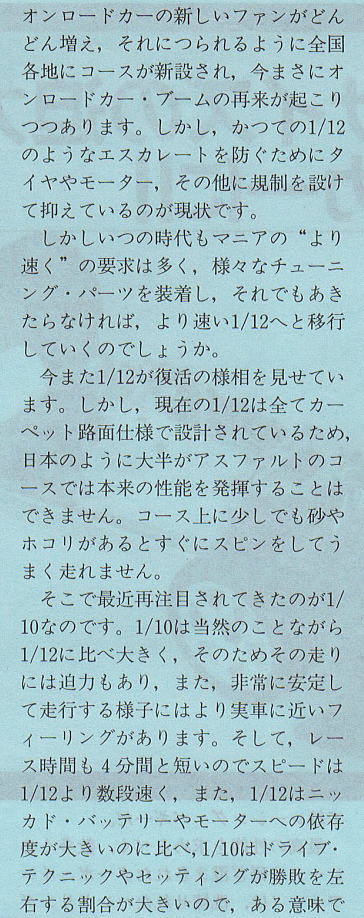 オンロードカーの新しいファンがどん
どん増え，それにつられるように全国
各地にコースが新設され，今まさにオ
ンロードカー・ブームの再来が起こり
つつあります。しかし，かつての1/12
のようなエスカレートを防ぐためにタ
イヤやモーター，その他に規制を設け
て抑えているのが現状です。
　しかしいつの時代もマニアの“より
速く”の要求は多く，様々なチューニ
ング・パーツを装着し，それでもあき
たらなければ，より速い1/12へと移行
していくのでしょうか。
　今また1/12が復活の様相を見せてい
ます。しかし，現在の1/12は全てカー
ペット路面仕様で設計されているため，
日本のように大半がアスファルトのコ
ースでは本来の性能を発揮することは
できません。コース上に少しでも砂や
ホコリがあるとすぐにスピンをしてう
まく走れません。
　そこで最近再注目されてきたのが1/
10なのです。1/10は当然のことながら
1/12に比べ大きく，そのためその走り
には迫力もあり，また，非常に安定し
て走行する様子にはより実車に近いフ
ィーリングがあります。そして，レー
ス時間も4分間と短いのでスピードは
1/12より数段速く，また，1/12はニッ
カド・バッテリーやモーターへの依存
度が大きいのに比べ，1/10はドライブ・
テクニックやセッティングが勝敗を左
右する割合が大きいので，ある意味で